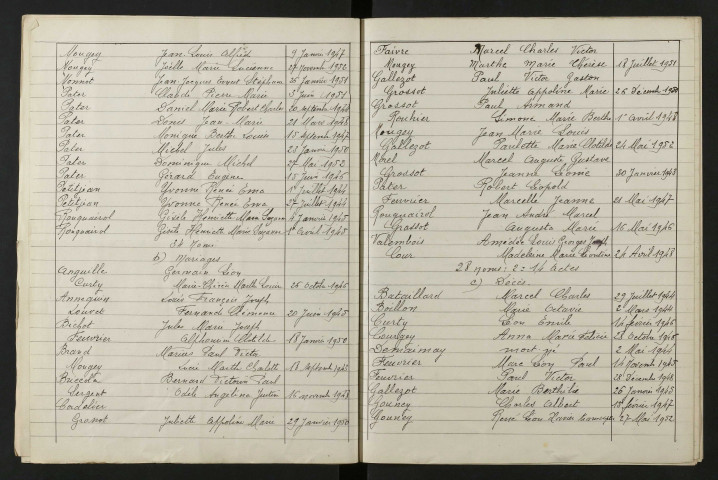 Mougey Jean-Louis Alfred 9 Janvier 1947
Mougey Joëlle Marie Lucienne 27 novembre 1952
Monnot Jean-Jacques Stéphane 25 Janvier 1951
Pater Claude Pierre Marie 3 Juin 1951
Pater Daniel Marie Robert Charles 20 septembre 1946
Pater Denis Jean Marie 21 Mars 1948
Pater Monique Berthe Louise 15 septembre 1947
Pater Michel Jules 23 Janvier 1950
Pater Dominique Michel 27 Mai 1952
Pater Gérard Eugène 15 Juin 1945
Petitjean Yvonne Renée Emma 1er Juillet 1944
Petitjean Yvonne Renée Emma 27 Juillet 1944
Rouquairol Gisèle Henriette Marie Suzanne 4 Janvier 1945
Rouquairol Gisèle Henriette Marie Suzanne 1er Avril 1945
34 Noms
b) Mariages
Anguille Germain Léon
Curty Marie Louise 26 Octobre 1946
Annequin Louis François Joseph
Louvet Fernande Clémence 20 Juin 1945
Bichot Jules Marie Joseph
Feuvrier Alphonsine Clotilde 18 Janvier 1950
Brand Marius Paul Victor
Mougey Lucie Marthe Charlotte 18 septembre 1945
Buccola Bernard Victorin Paul
Sergent Odile Angelina Justine 16 novembre 1948
Cadelier
Grosset Juliette Appoline Marie 29 Janvier 1950
Faivre Marcel Charles Victor
Mougey Marthe Marie Thérèse 18 Juillet 1951
Gallezot Paul Victor Gaston
Grosset Juliette Appoline Marie 26 Décembre 1950
Grosset Paul Armand
Rouhier Simone Marie Berthe 1er Avril 1948
Mougey Jean Marie Louis
Gallezot Paulette Marie Clotilde 24 Mai 1952
Morel Marcel Auguste Gustave
Grosset Jeanne Léonie 30 Janvier 1948
Pater Robert Léopold
Feuvrier Marcelle Jeanne 21 Mai 1947
Rouquairol Jean André Marcel
Grosset Augusta Marie 16 Mai 1946
Valombois Amédée Louis Georges Joseph
Cour Madeleine Marie Léontine 24 Avril 1948
28 noms : 2 = 14 actes
c) Décès.
Bataillard Marcel Charles 29 Juillet 1944
Boillon Marie Octavie 2 Mars 1944
Curty Léon Emile 14 février 1946
Courtgey Anna Marie 28 Octobre 1946
Demtaimay mort né 2 Mai 1944
Feuvrier Marc Léon Paul 14 Août 1945
Feuvrier Paul Victor 28 Décembre 1948
Gallezot Marie Berthilde 26 Janvier 1945
Gouney Charles Albert 15 février 1947
Gouney René Léon Xavier 27 Mai 1952